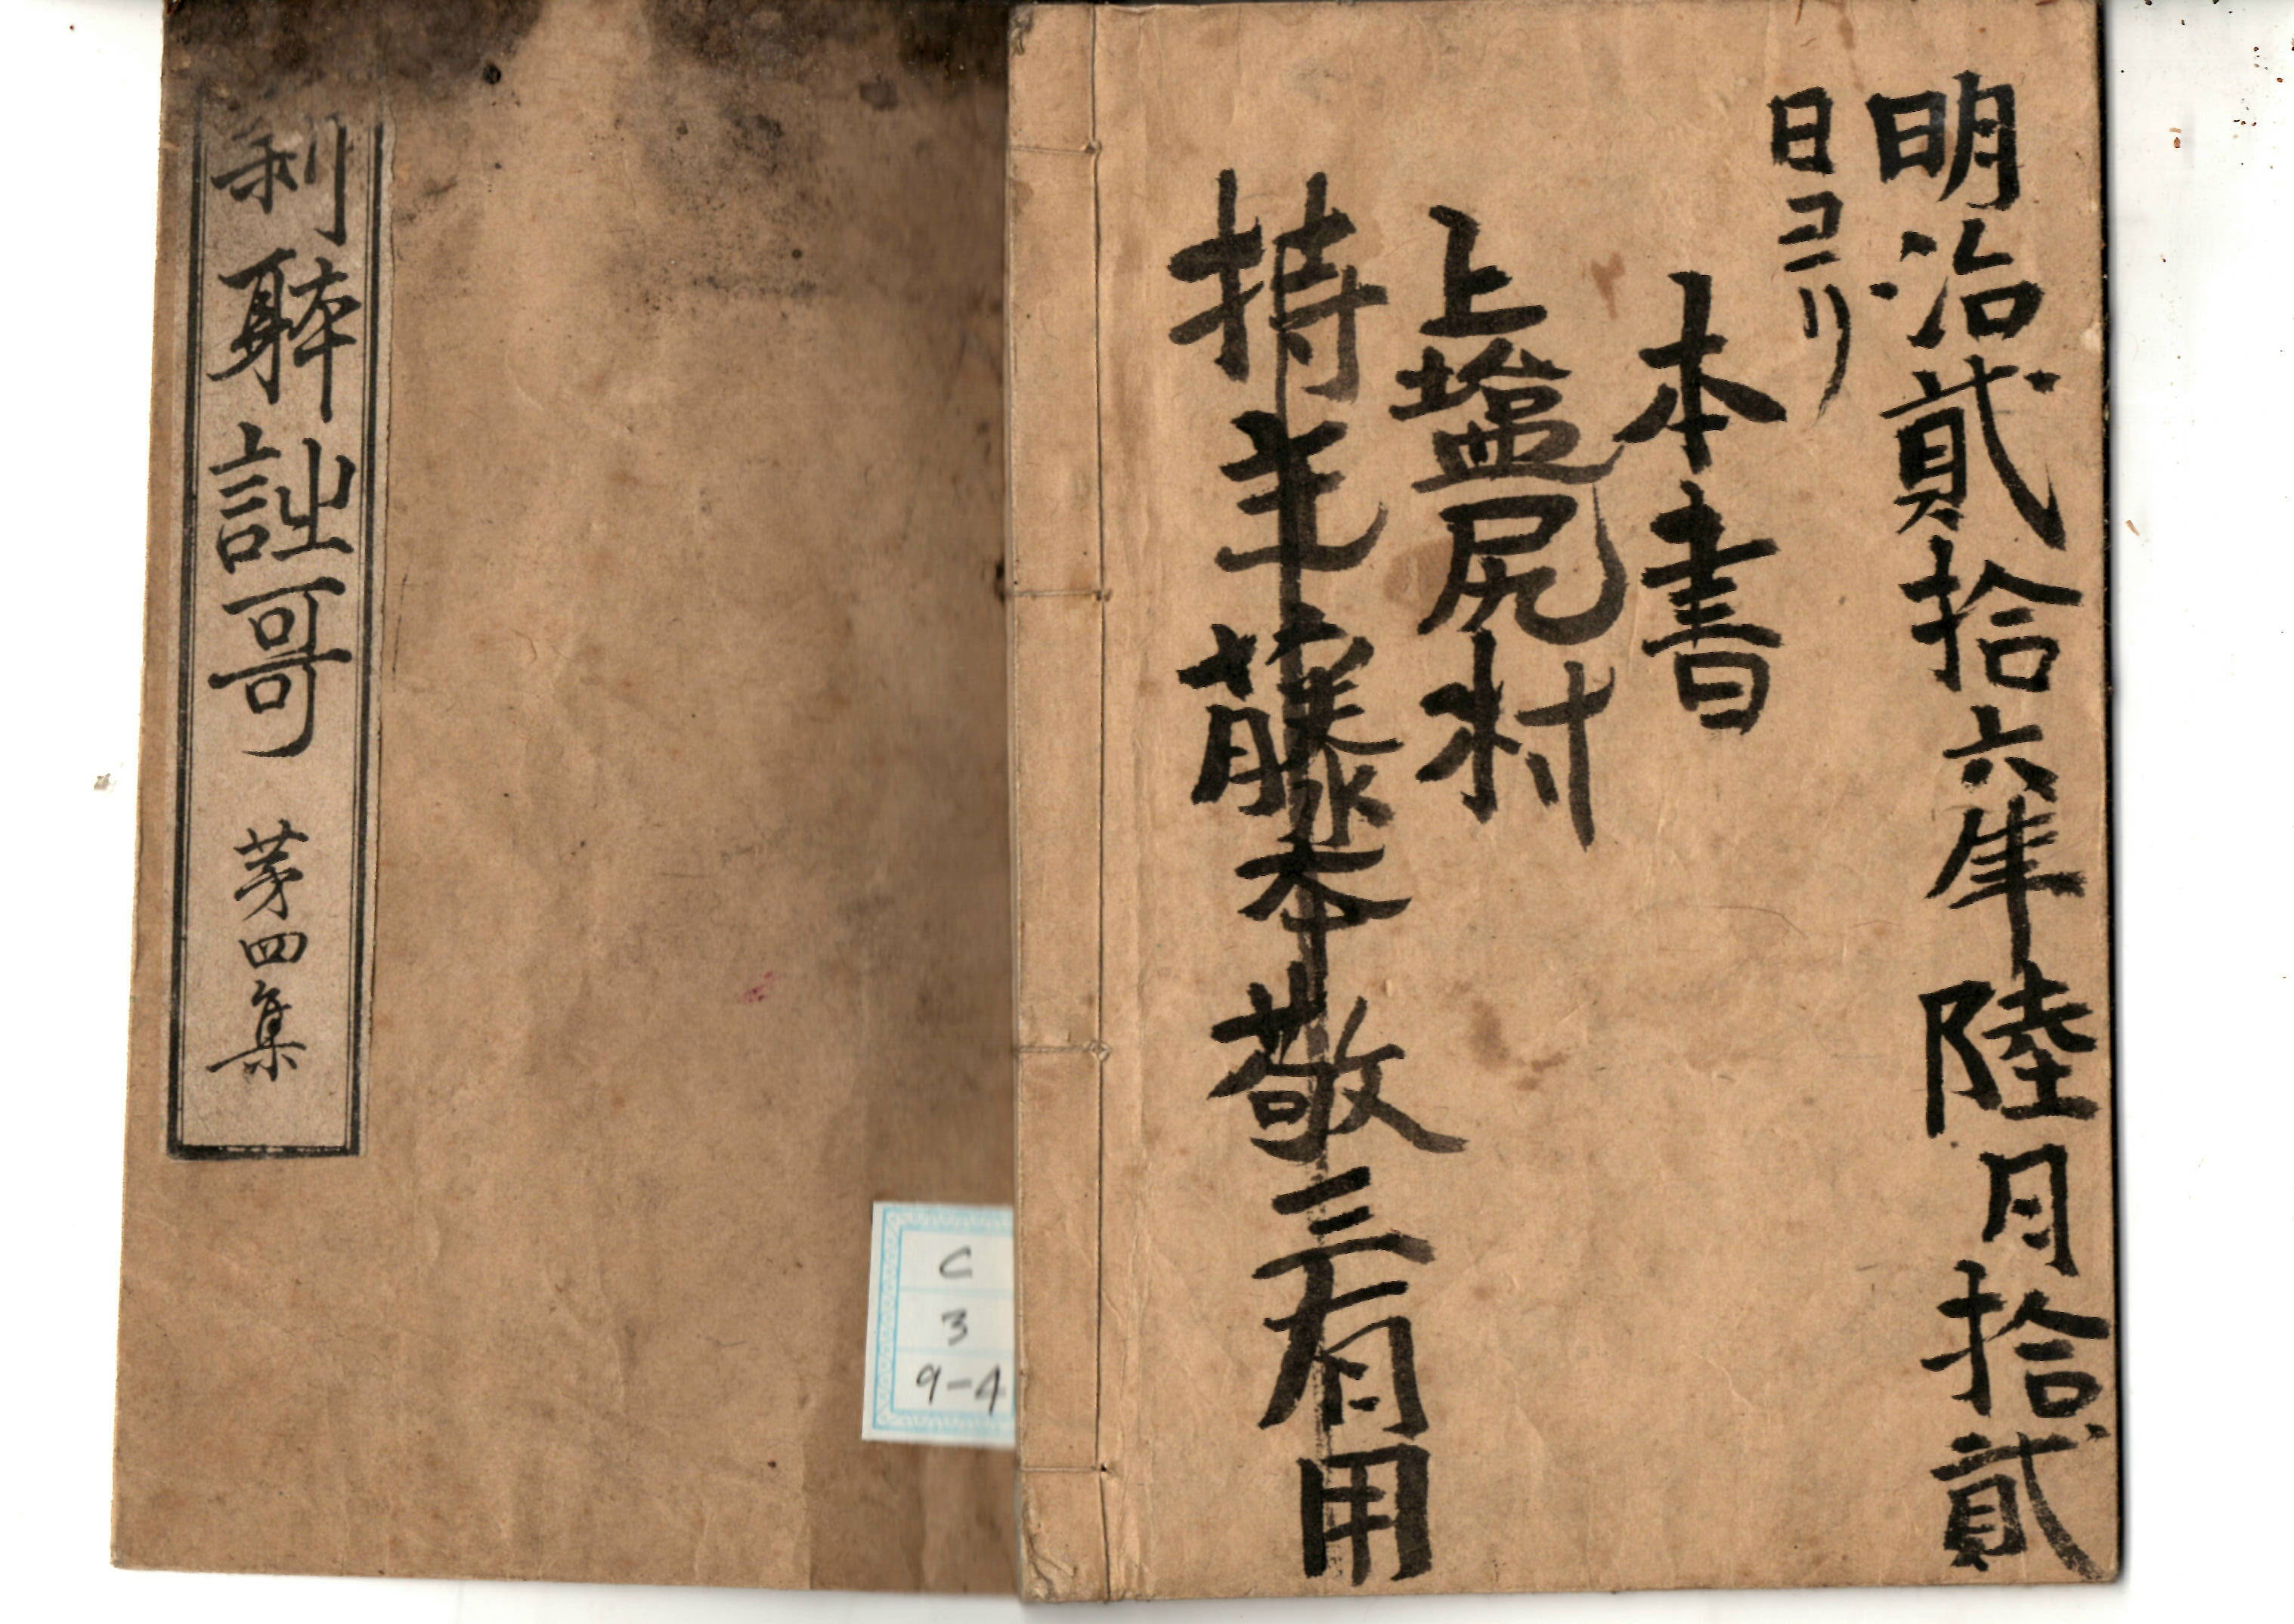 明治貳拾六年陸月拾貳
日ヨリ
本書
上塩尻村
持主藤本敬三有用
新躰詩哥 第四集
C
3
9-4